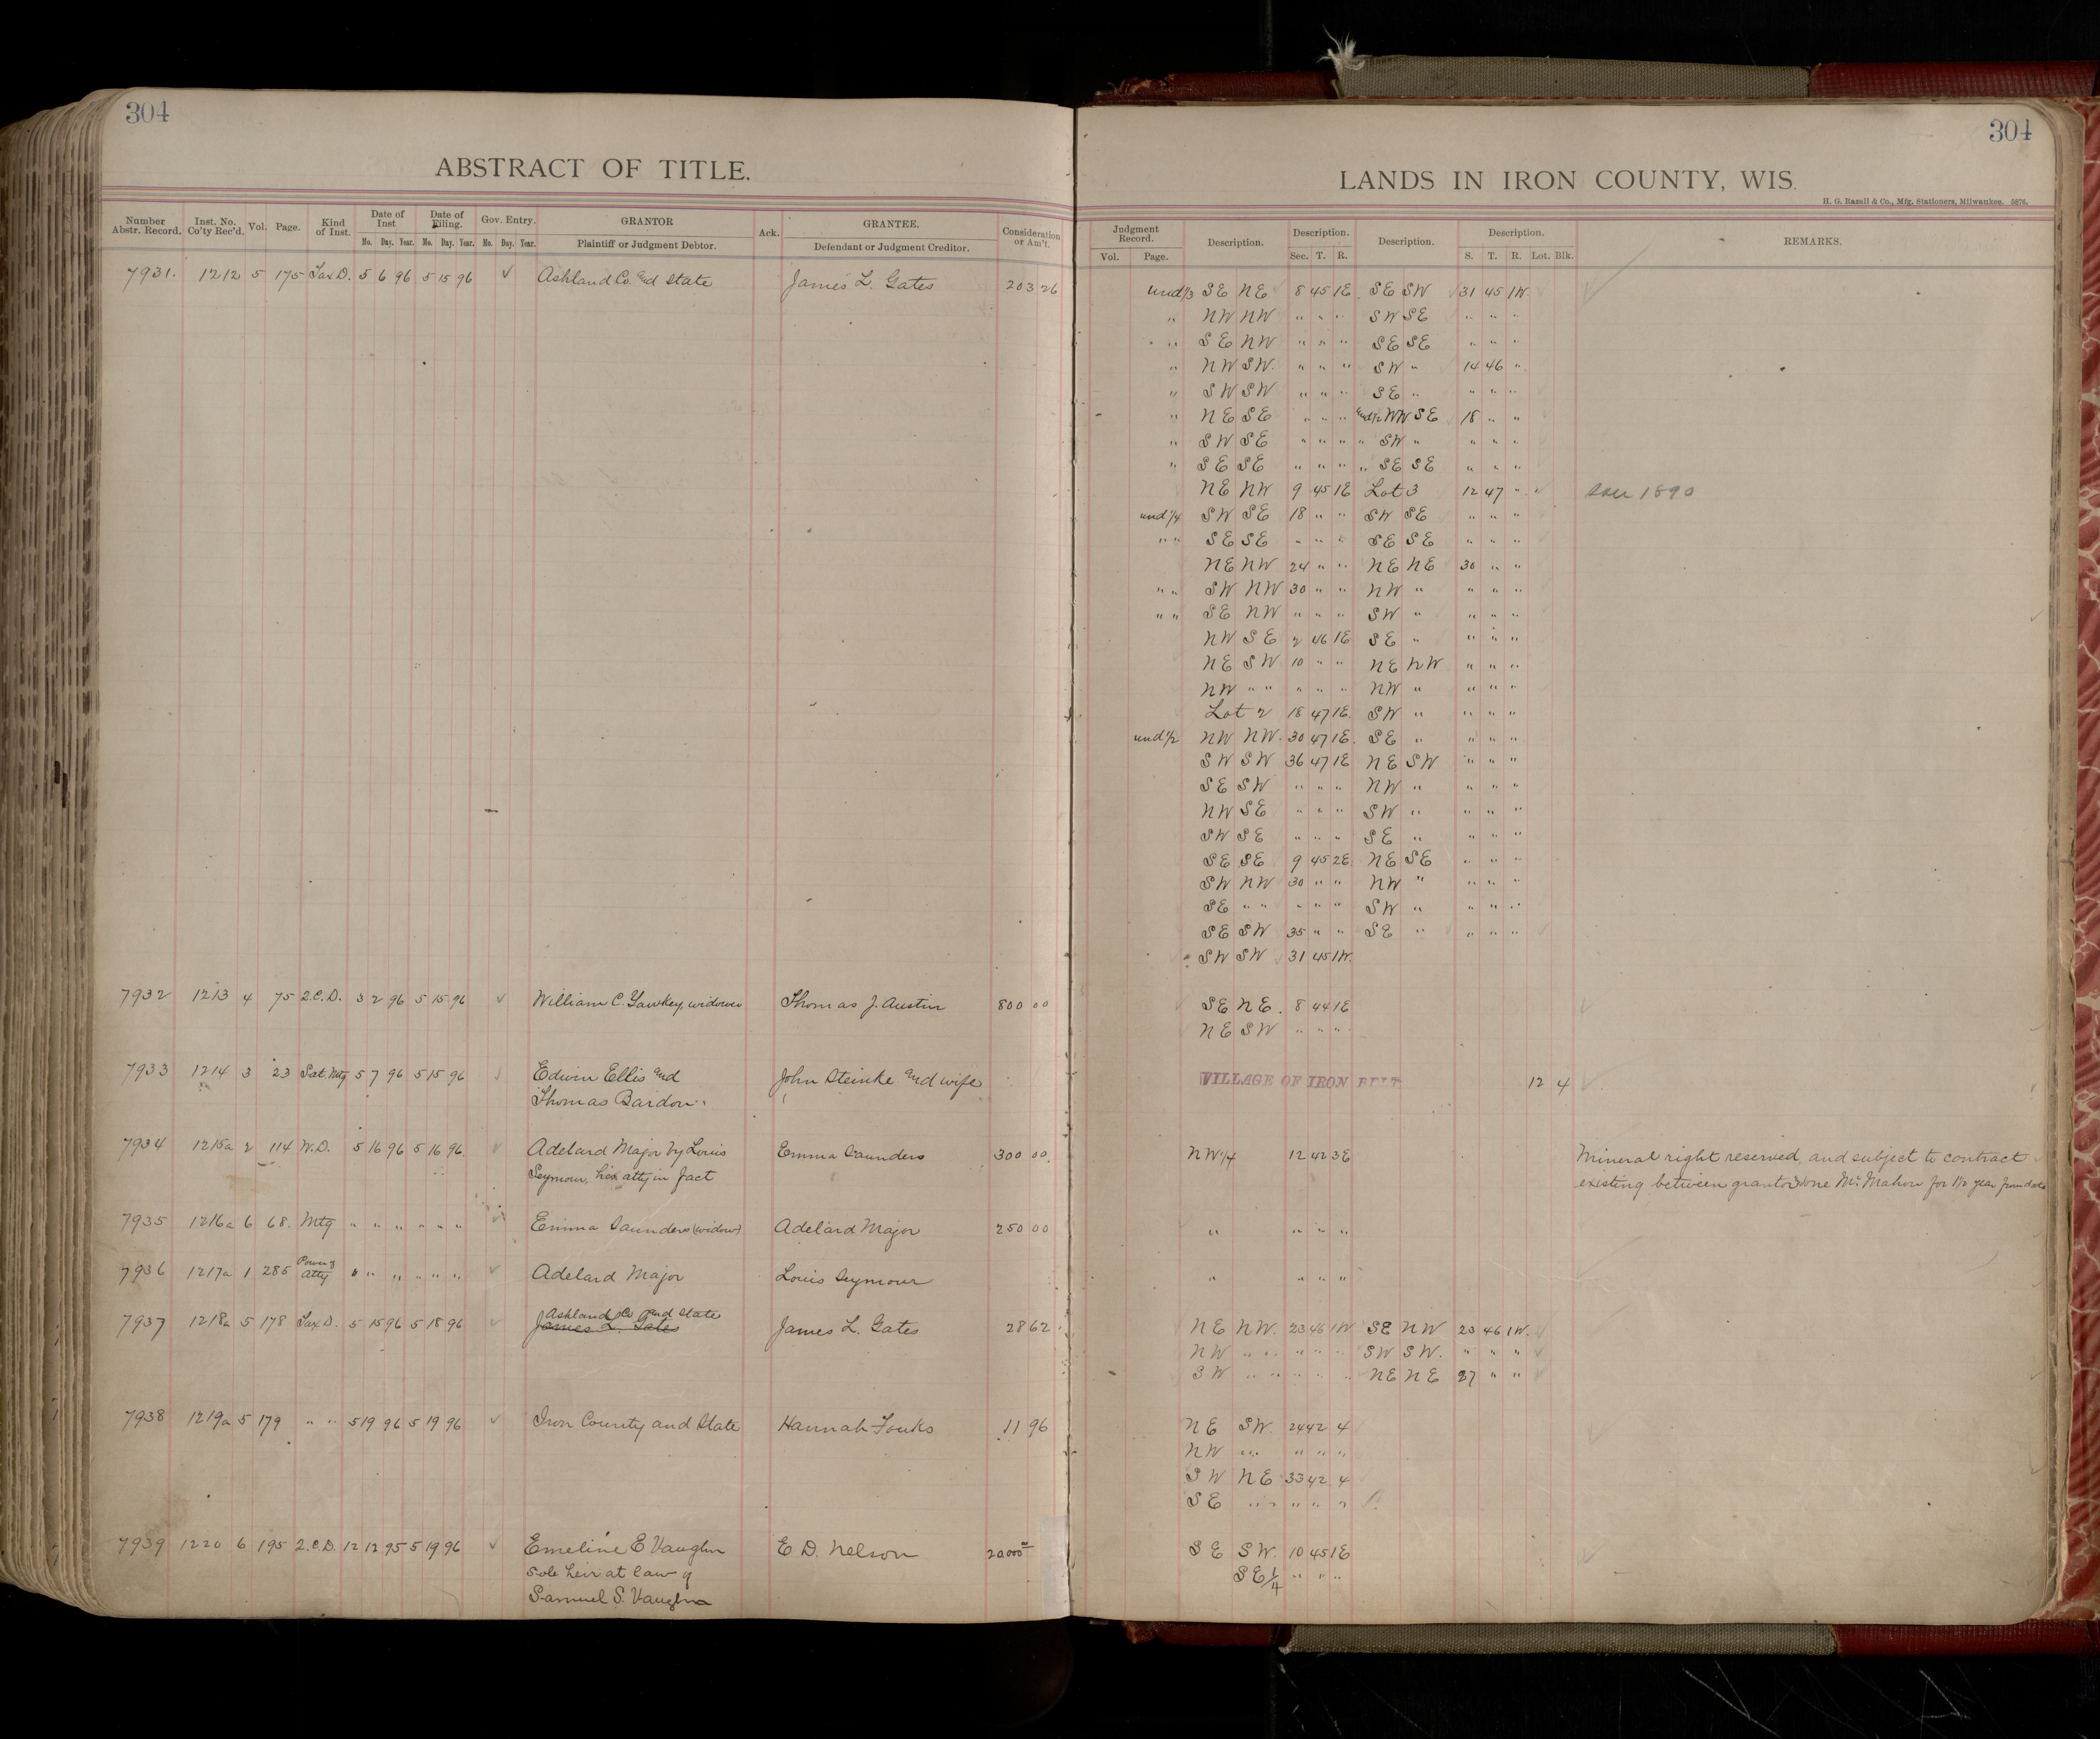 304
304
ABSTRACT OF TITLE.
LANDS IN IRON COUNTY, WIS.
H. G. Razall & Co., Mfg. Stationers, Milwaukee. 5876.
Number Abstr. Record. Inst. No. Co'ty Rec'd. Vol. Page. Kind of Inst. Date of Inst Mo. Day. Year. Date of Filing. Mo. Day. Year. Gov. Entry. Mo. Day. Year. GRANTOR Plaintiff or Judgment Debtor. Ack. GRANTEE. Defendant or Judgment Creditor. Consideration or Am't.
Judgment Record. Vol. Page. Description. Description. Sec. T. R. Description. Description. S. T. R. Lot. Blk. REMARKS.
7931. 1212 5 175 Tax D. 5 6 96 5 15 96 ✓ Ashland Co. and State James L. Gates 203 26
und 1/3 SE NE 8 45 1E. SE SW 31 45 1W.
" NW NW " " " SW SE " " "
" SE NW " " " SE SE " " "
" NW SW. " " " SW " 14 46 "
" SW SW " " " SE " " " "
" NE SE " " " und 1/2 NW SE 18 " "
" SW SE " " " " SW " " " "
" SE SE " " " " SE SE " " "
NE NW 9 45 1E Lot 3 12 47 " 1890
und 1/4 SW SE 18 " " SW SE " " "
" " SE SE " " " SE SE " " "
NE NW 24 " " NE NE 30 " "
" " SW NW 30 " " NW " " " "
" " SE NW " " " SW " " " "
NW SE 2 46 1E SE " " " "
NE SW 10 " " NE NW " " "
NW " " " " " NW " " " "
Lot 2 18 47 1E. SW " " " "
und 1/2 NW NW. 30 47 1E. SE " " " "
SW SW 36 47 1E NE SW " " "
SE SW " " " NW " " " "
NW SE " " " SW " " " "
SW SE " " " SE " " " "
SE SE 9 45 2E. NE SE " " "
SW NW 30 " " NW " " " "
SE " " " " " SW " " " "
SE SW 35 " " SE " " " "
SW SW 31 45 1W.
7932 1213 4 75 2.C.D. 3 2 96 5 15 96 ✓ William C. Yawkey, widower Thomas J. Austin 800 00 SE NE. 8 44 1E
NE SW " " "
7933 1214 3 23 Sat. Mtg 5 7 96 5 15 96 ✓ Edwin Ellis and John Steinke and wife VILLAGE OF IRON BELT 12 4
Thomas Bardon
7934 1215a 2 114 W.D. 5 16 96 5 16 96. ✓ Adelard Major by Louis Emma Saunders 300 00. NW 1/4 12 42 3E Mineral right reserved, and subject to contract
Seymour, his atty in fact existing between grantor & one Mc Mahon for 1 1/2 year from date
7935 1216a 6 68. Mtg " " " " " " ✓ Emma Saunders (widow) Adelard Major 250 00 " " " "
7936 1217a 1 285 Power of Atty " " " " " " ✓ Adelard Major Louis Seymour " " " "
Ashland Co and State
7937 1218a 5 178 Tax D. 5 15 96 5 18 96 ✓ James L. Gates James L. Gates 28 62 NE NW. 23 46 1W SE NW 23 46 1W.
NW " " " " " SW SW. " " "
SW " " " " " NE NE 27 " "
7938 1219a 5 179 " " 5 19 96 5 19 96 ✓ Iron County and State Hannah Fouks 11 96 NE SW. 24 42 4
NW " " " " "
SW NE 33 42 4
SE " " " " "
7939 1220 6 195 2.C.D. 12 12 95 5 19 96 ✓ Emeline E Vaughn E D. Nelson 20000 SE SW. 10 45 1E
Sole heir at law of SE 1/4 " " "
Samuel S. Vaughn